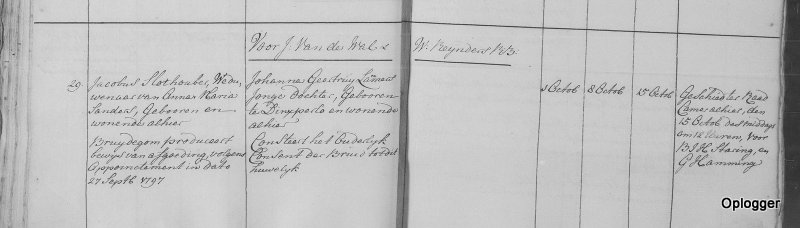 Voor J. Van de Wal &
W. Reynders R.B.
29
Jacobus Slothouber, Wedu-
wenaar van Anna Maria
Sanders, Gebooren en
wonende alhier
Bruydegom produceert
bewys van afgoeding, volgens
Appoinctement in dato
27 Septb 1797
Johanna Geertruy
Jonge dochter, Gebooren
te en wonende
alhier
Constaert het Ouderlyk
Consent der Bruid tot dit
huwelyk
1 Octob
8 Octob
15 Octob
Geschied ter Raad
Camer alhier, den
15 Octob des middags
om 12 Uuren, voor
en
G Hamming
Oplogger